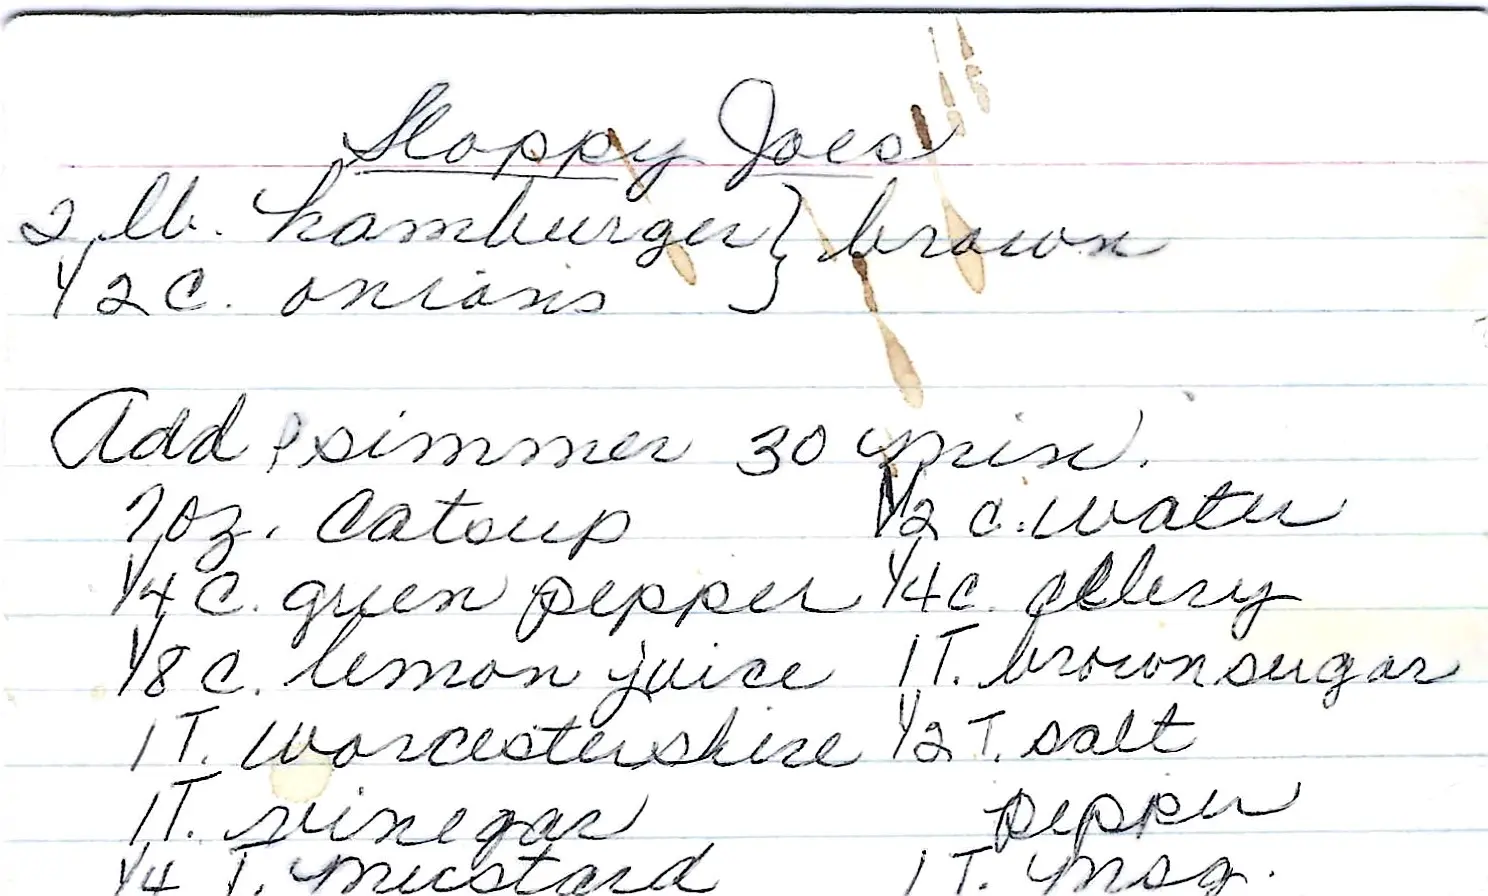 Sloppy Joes
2 lb. hamburger } brown
1/2 c. onions
Add & simmer 30 min.
7oz. catsup 1/2 c. water
1/4 c. green pepper 1/4 c. celery
1/8 c. lemon juice 1 T. brown sugar
1 T. Worcestershire 1/2 T. salt
1 T. vinegar pepper
1/4 T. mustard 1 T. msg.